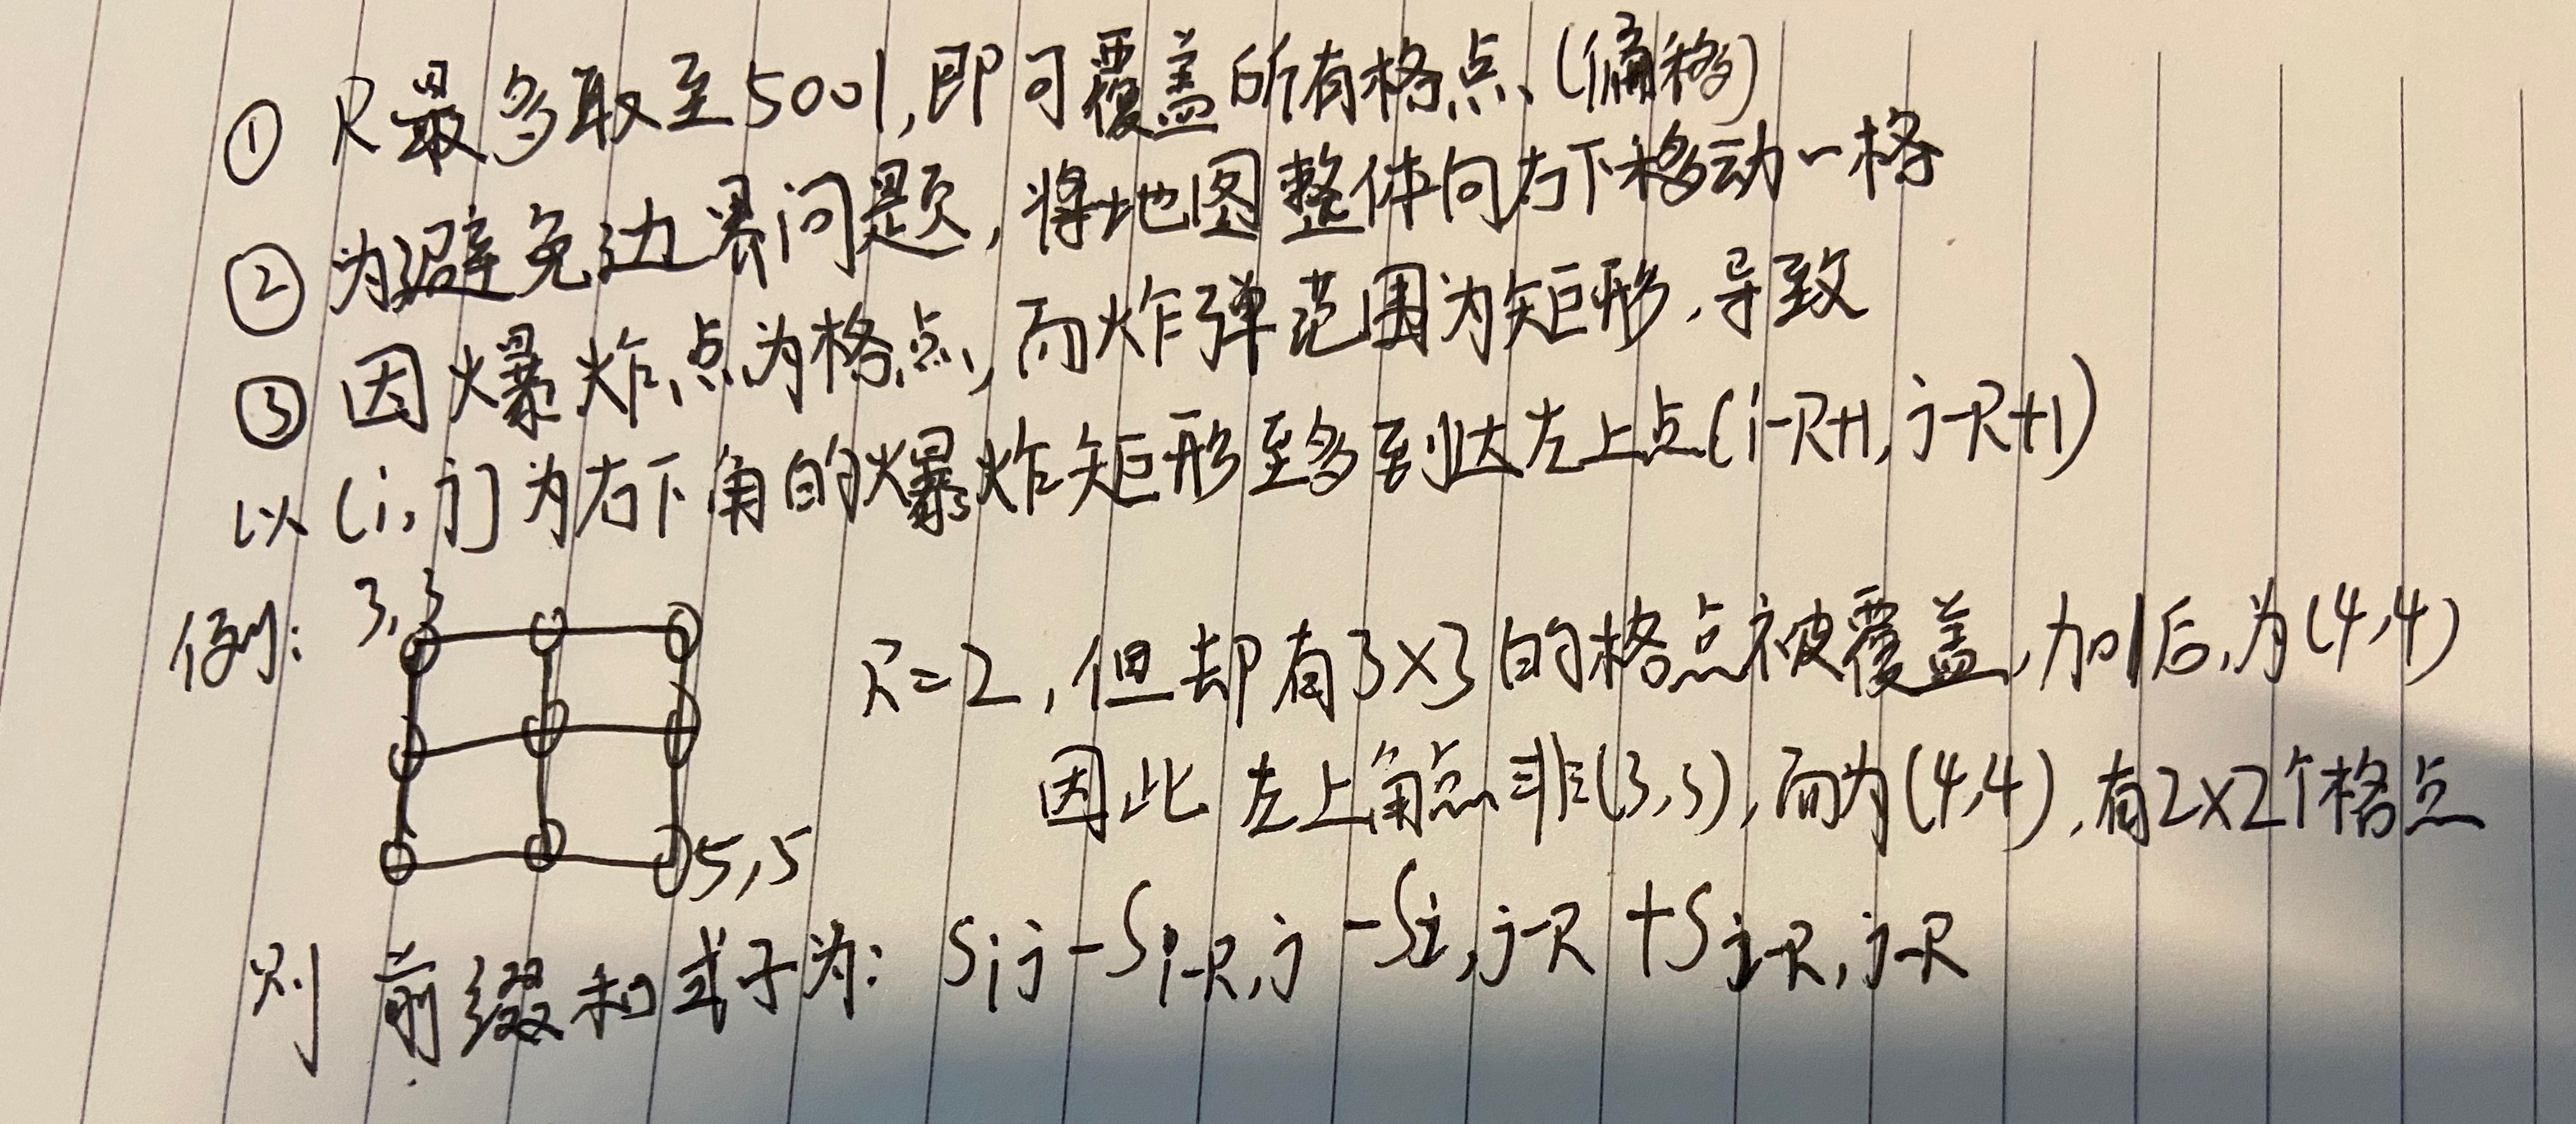 ① R最多取至5001,即可覆盖所有格点、(偏移)
② 为避免边界问题,将地图整体向右下移动一格
③ 因爆炸点为格点,而炸弹范围为矩形,导致
以(i,j]为右下角的爆炸矩形至多到达左上点(i-R+1,j-R+1)
例: 3,3
R=2,但却有3×3的格点被覆盖,加1后,为(4,4)
因此 左上角点非(3,3),而为(4,4),有2×2个格点
5,5
则 前缀和式子为: Sij-Si-R,j-Si,j-R+Si-R,j-R